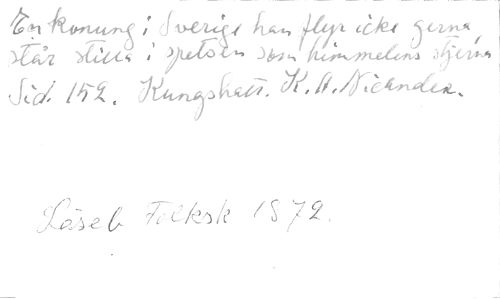 En konung i Sverige han flyr icke gerna,
står stilla i spetsen som himmelens stjerna
Sid. 152. Kungshatt. K. A. Nicander.
Läseb Folksk 1872.